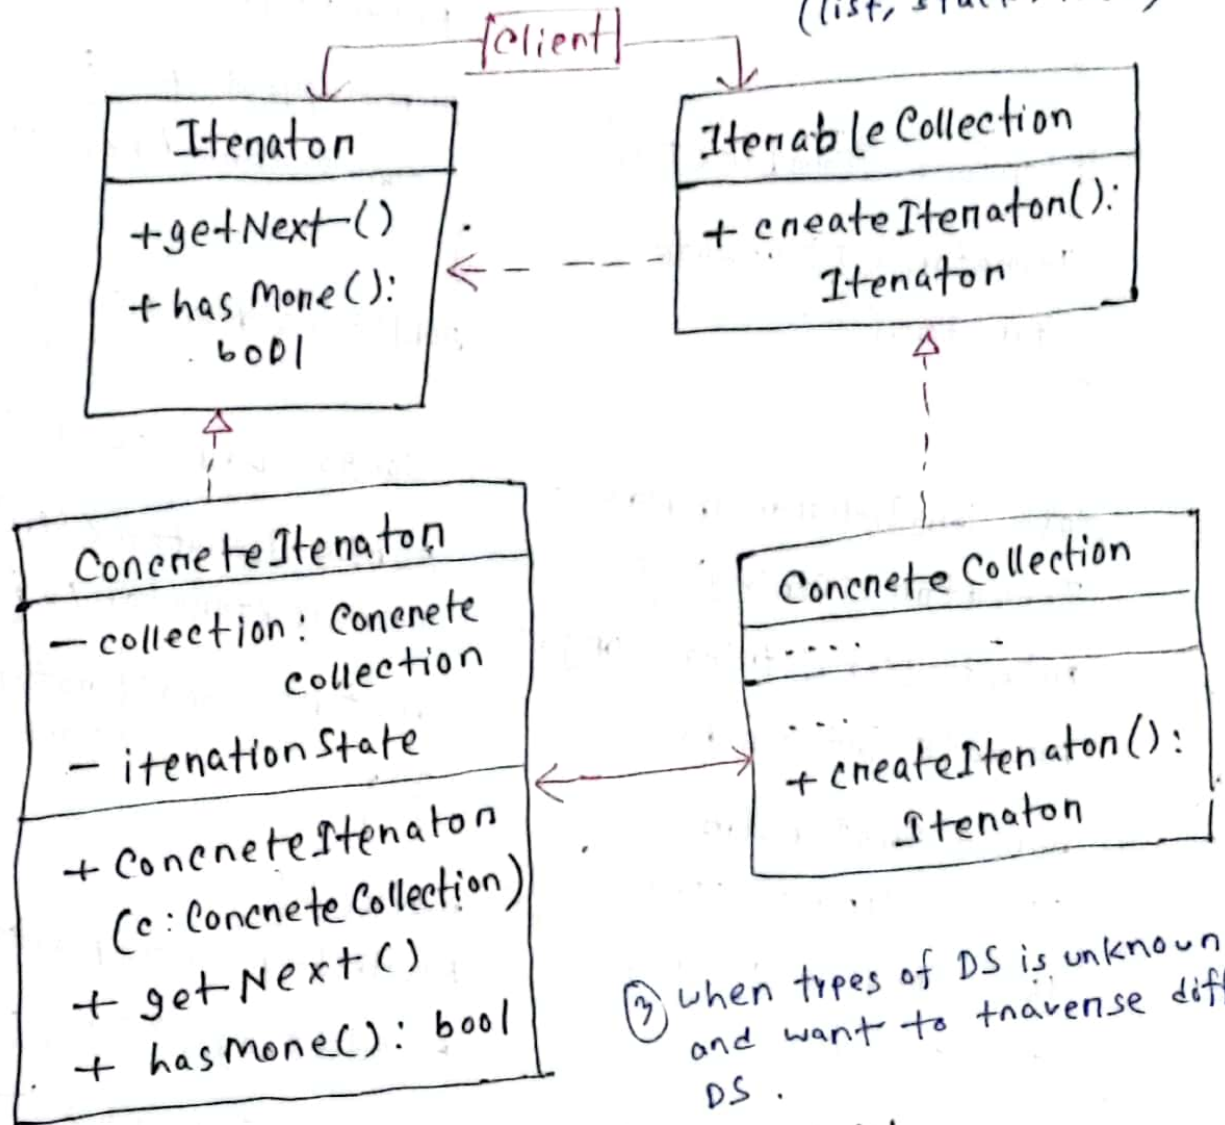 (list,
Client
Iterator
+getNext()
+ hasMore():
bool
IterableCollection
+ createIterator():
Iterator
ConcreteIterator
- collection: Concrete
collection
- iterationState
+ ConcreteIterator
(c: ConcreteCollection)
+ getNext()
+ hasMore(): bool
Concrete Collection
....
...
+ createIterator():
Iterator
③ when types of DS is unknown
and want to traverse diff
DS.